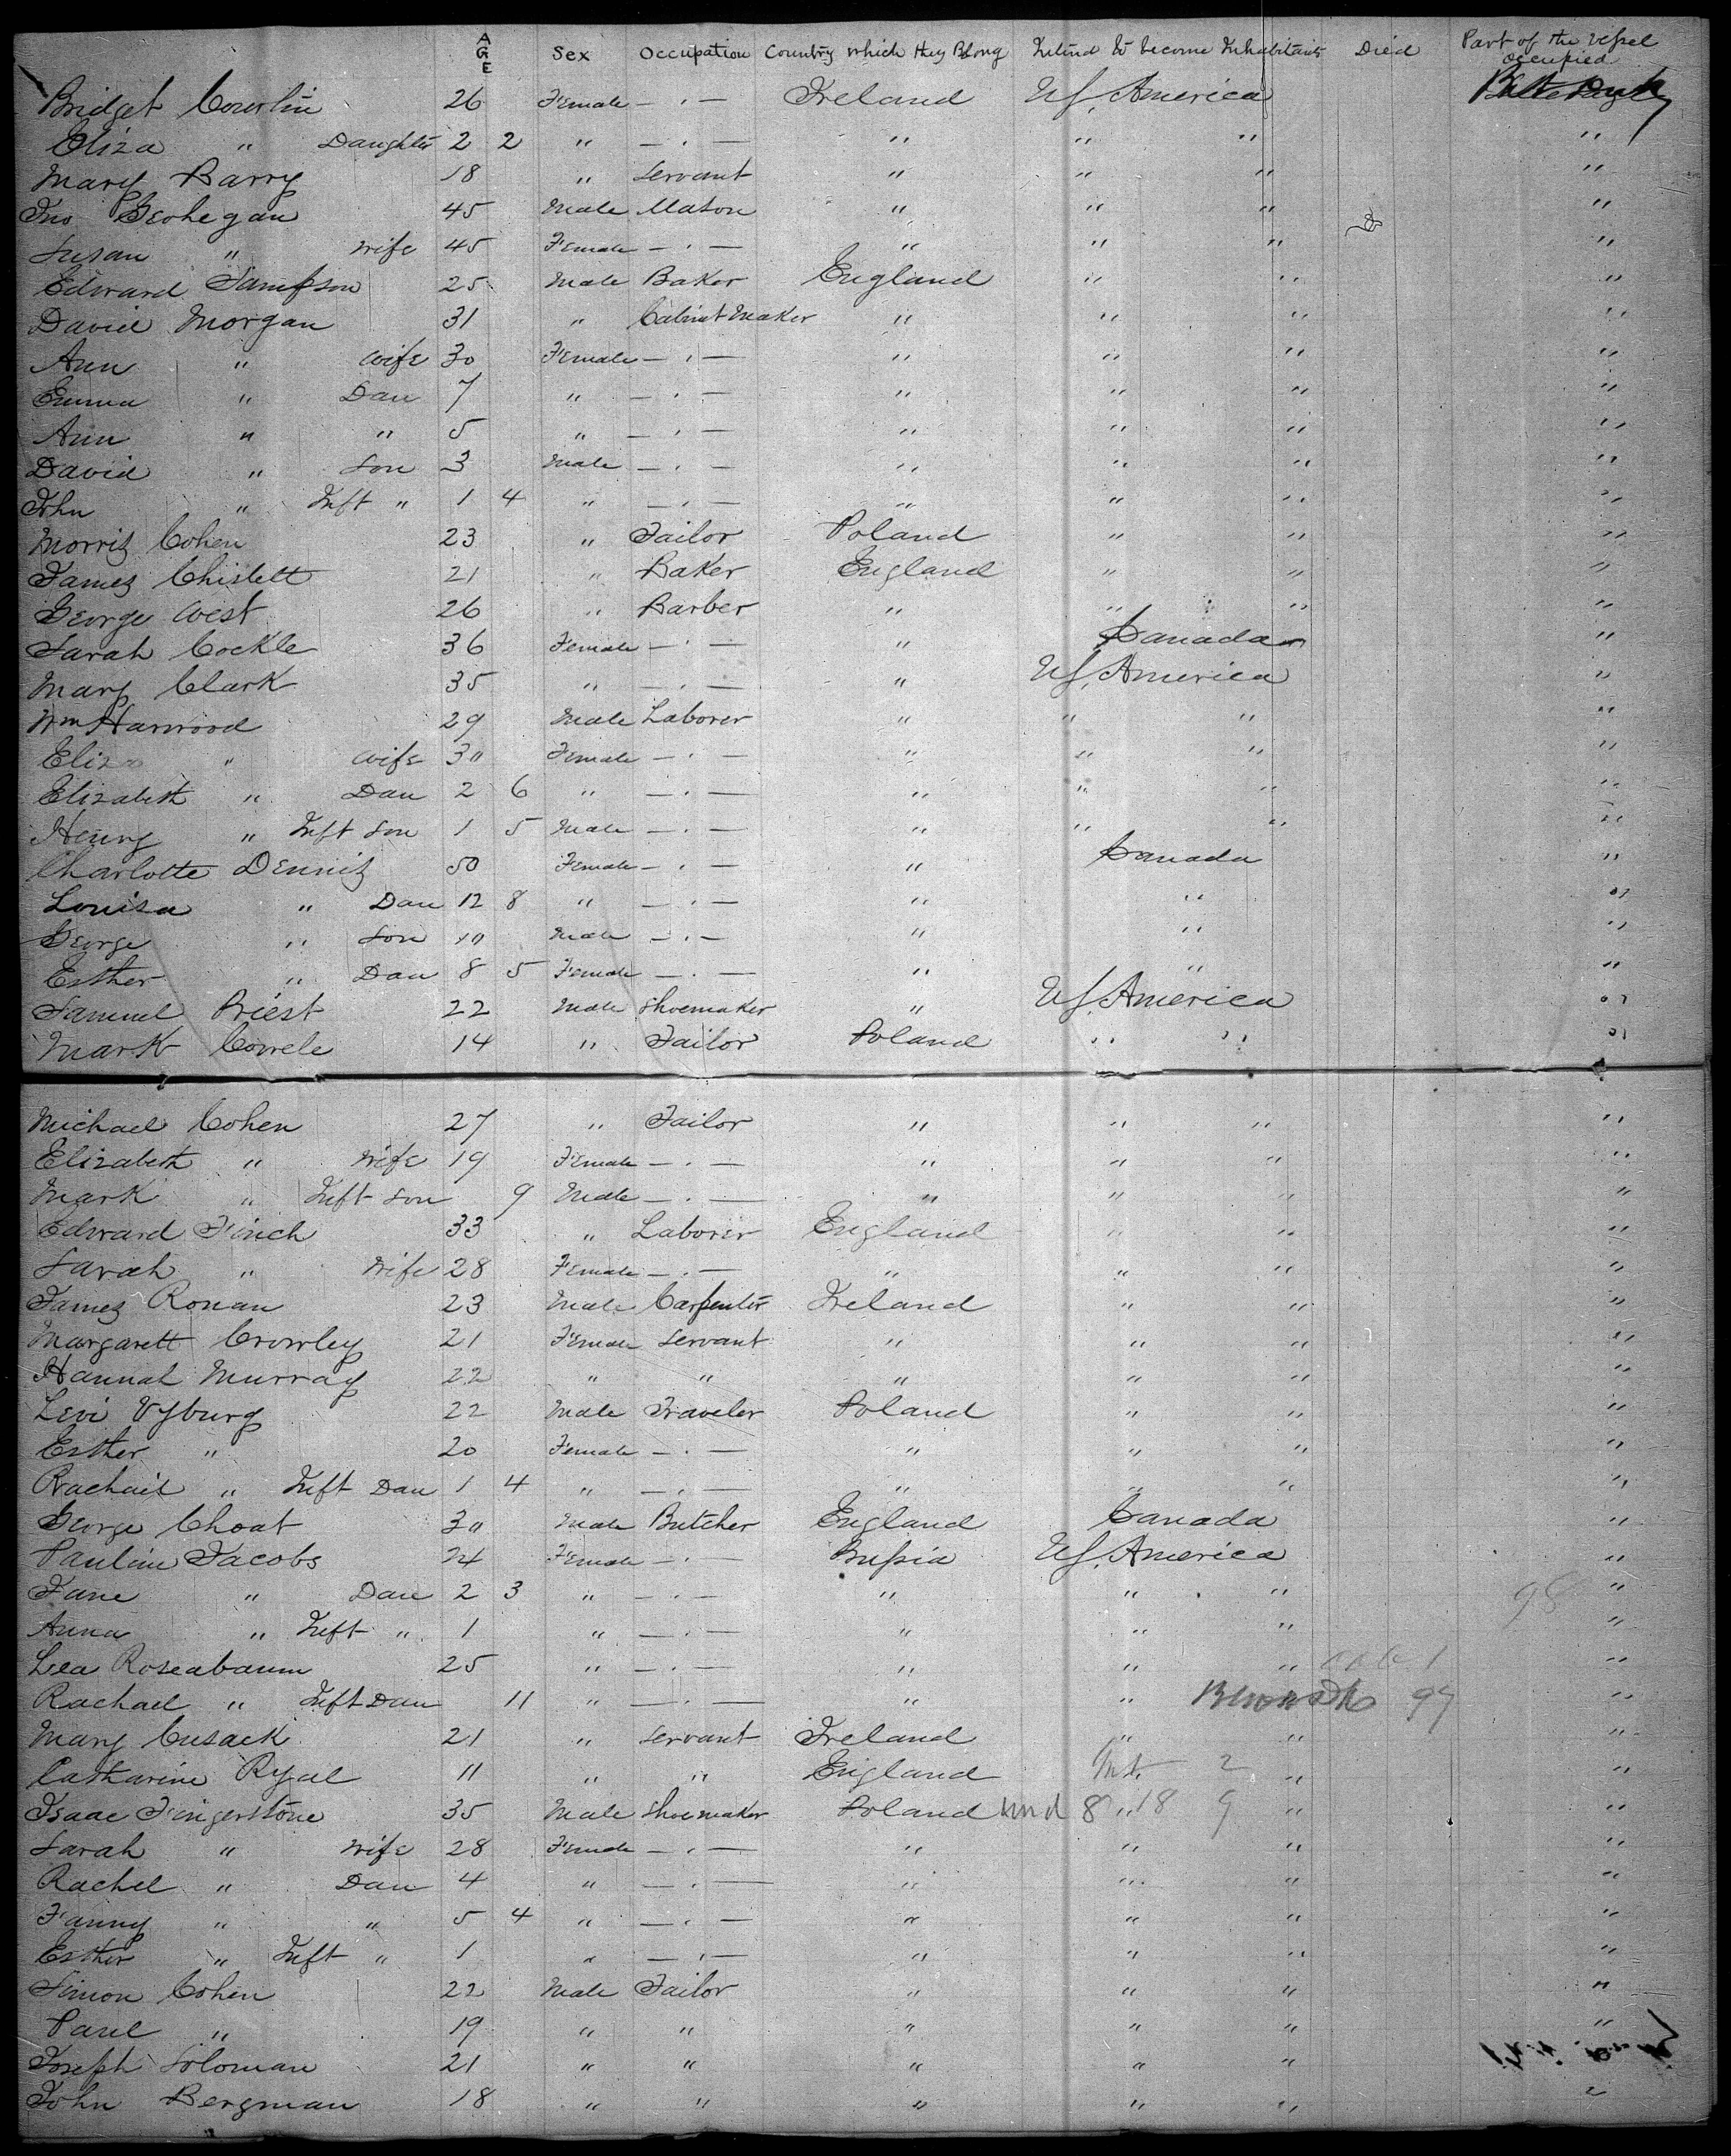 AGE Sex Occupation Country which they Blong Intend to become Inhabitants Died Part of the vessel occupied
Bridget 26 Female — . — Ireland US, America
Eliza " Daughter 2 2 " — . — " " " "
Mary Barry 18 " Servant " " " "
Jno Geohegan 45 Male Mason " " " "
Susan " wife 45 Female — . — " " " "
Edward Sampson 25 Male Baker England " " "
David Morgan 31 " Cabinet Maker " " " "
Ann " wife 30 Female — . — " " " "
Emma " Dau 7 " — . — " " " "
Ann " " 5 " — . — " " " "
David " Son 3 Male — . — " " " "
John " Inft " 1 4 " — . — " " " "
Morris Cohen 23 " Tailor Poland " " "
James Chislett 21 " Baker England " " "
George West 26 " Barber " " " "
Sarah Cockle 36 Female — . — " Canada "
Mary Clark 35 " — . — " US, America "
Wm Harwood 29 Male Laborer " " " "
Eliza " wife 30 Female — . — " " " "
Elizabeth " Dau 2 6 " — . — " " " "
Henry " Inft Son 1 5 Male — . — " " " "
Charlotte Dennis 50 Female — . — " Canada "
Louisa " Dau 12 8 " — . — " " "
George " Son 10 Male — . — " " "
Esther " Dau 8 5 Female — . — " " "
Samuel Priest 22 Male Shoemaker " US, America "
Mark 14 " Tailor Poland " " "
Michael Cohen 27 " Tailor " " " "
Elizabeth " wife 19 Female — . — " " " "
Mark " Inft Son 9 Male — . — " " " "
Edward Finch 33 " Laborer England " " "
Sarah " wife 28 Female — . — " " " "
James Ronan 23 Male Carpenter Ireland " " "
Margarett Crowley 21 Female Servant " " " "
Hannah Murray 22 " " " " " "
Levi Vyburg 22 Male Traveler Poland " " "
Esther " 20 Female — . — " " " "
Rachail " Inft Dau 1 4 " — . — " " " "
George Choat 30 Male Butcher England Canada "
Pauline Jacobs 24 Female — . — US, America "
Jane " Dau 2 3 " — . — " " " 98 "
Anna " Inft " 1 " — . — " " " "
Lea Roseabaum 25 " — . — " " " "
Rachael " Inft Dau 11 " — . — " " 97 "
Mary Cusack 21 " Servant Ireland " " "
Catharine Ryal 11 " " England 2 " "
Isaac Fingerstone 35 Male Shoemaker Poland und 8 " 18 9 " "
Sarah " wife 28 Female — . — " " " "
Rachel " Dau 4 " — . — " " " "
Fanny " " 5 4 " — . — " " " "
Esther " Inft " 1 " — . — " " " "
Simon Cohen 22 Male Tailor " " " "
Paul " 19 " " " " " "
Joseph Soloman 21 " " " " "
John Bergman 18 " " " " "